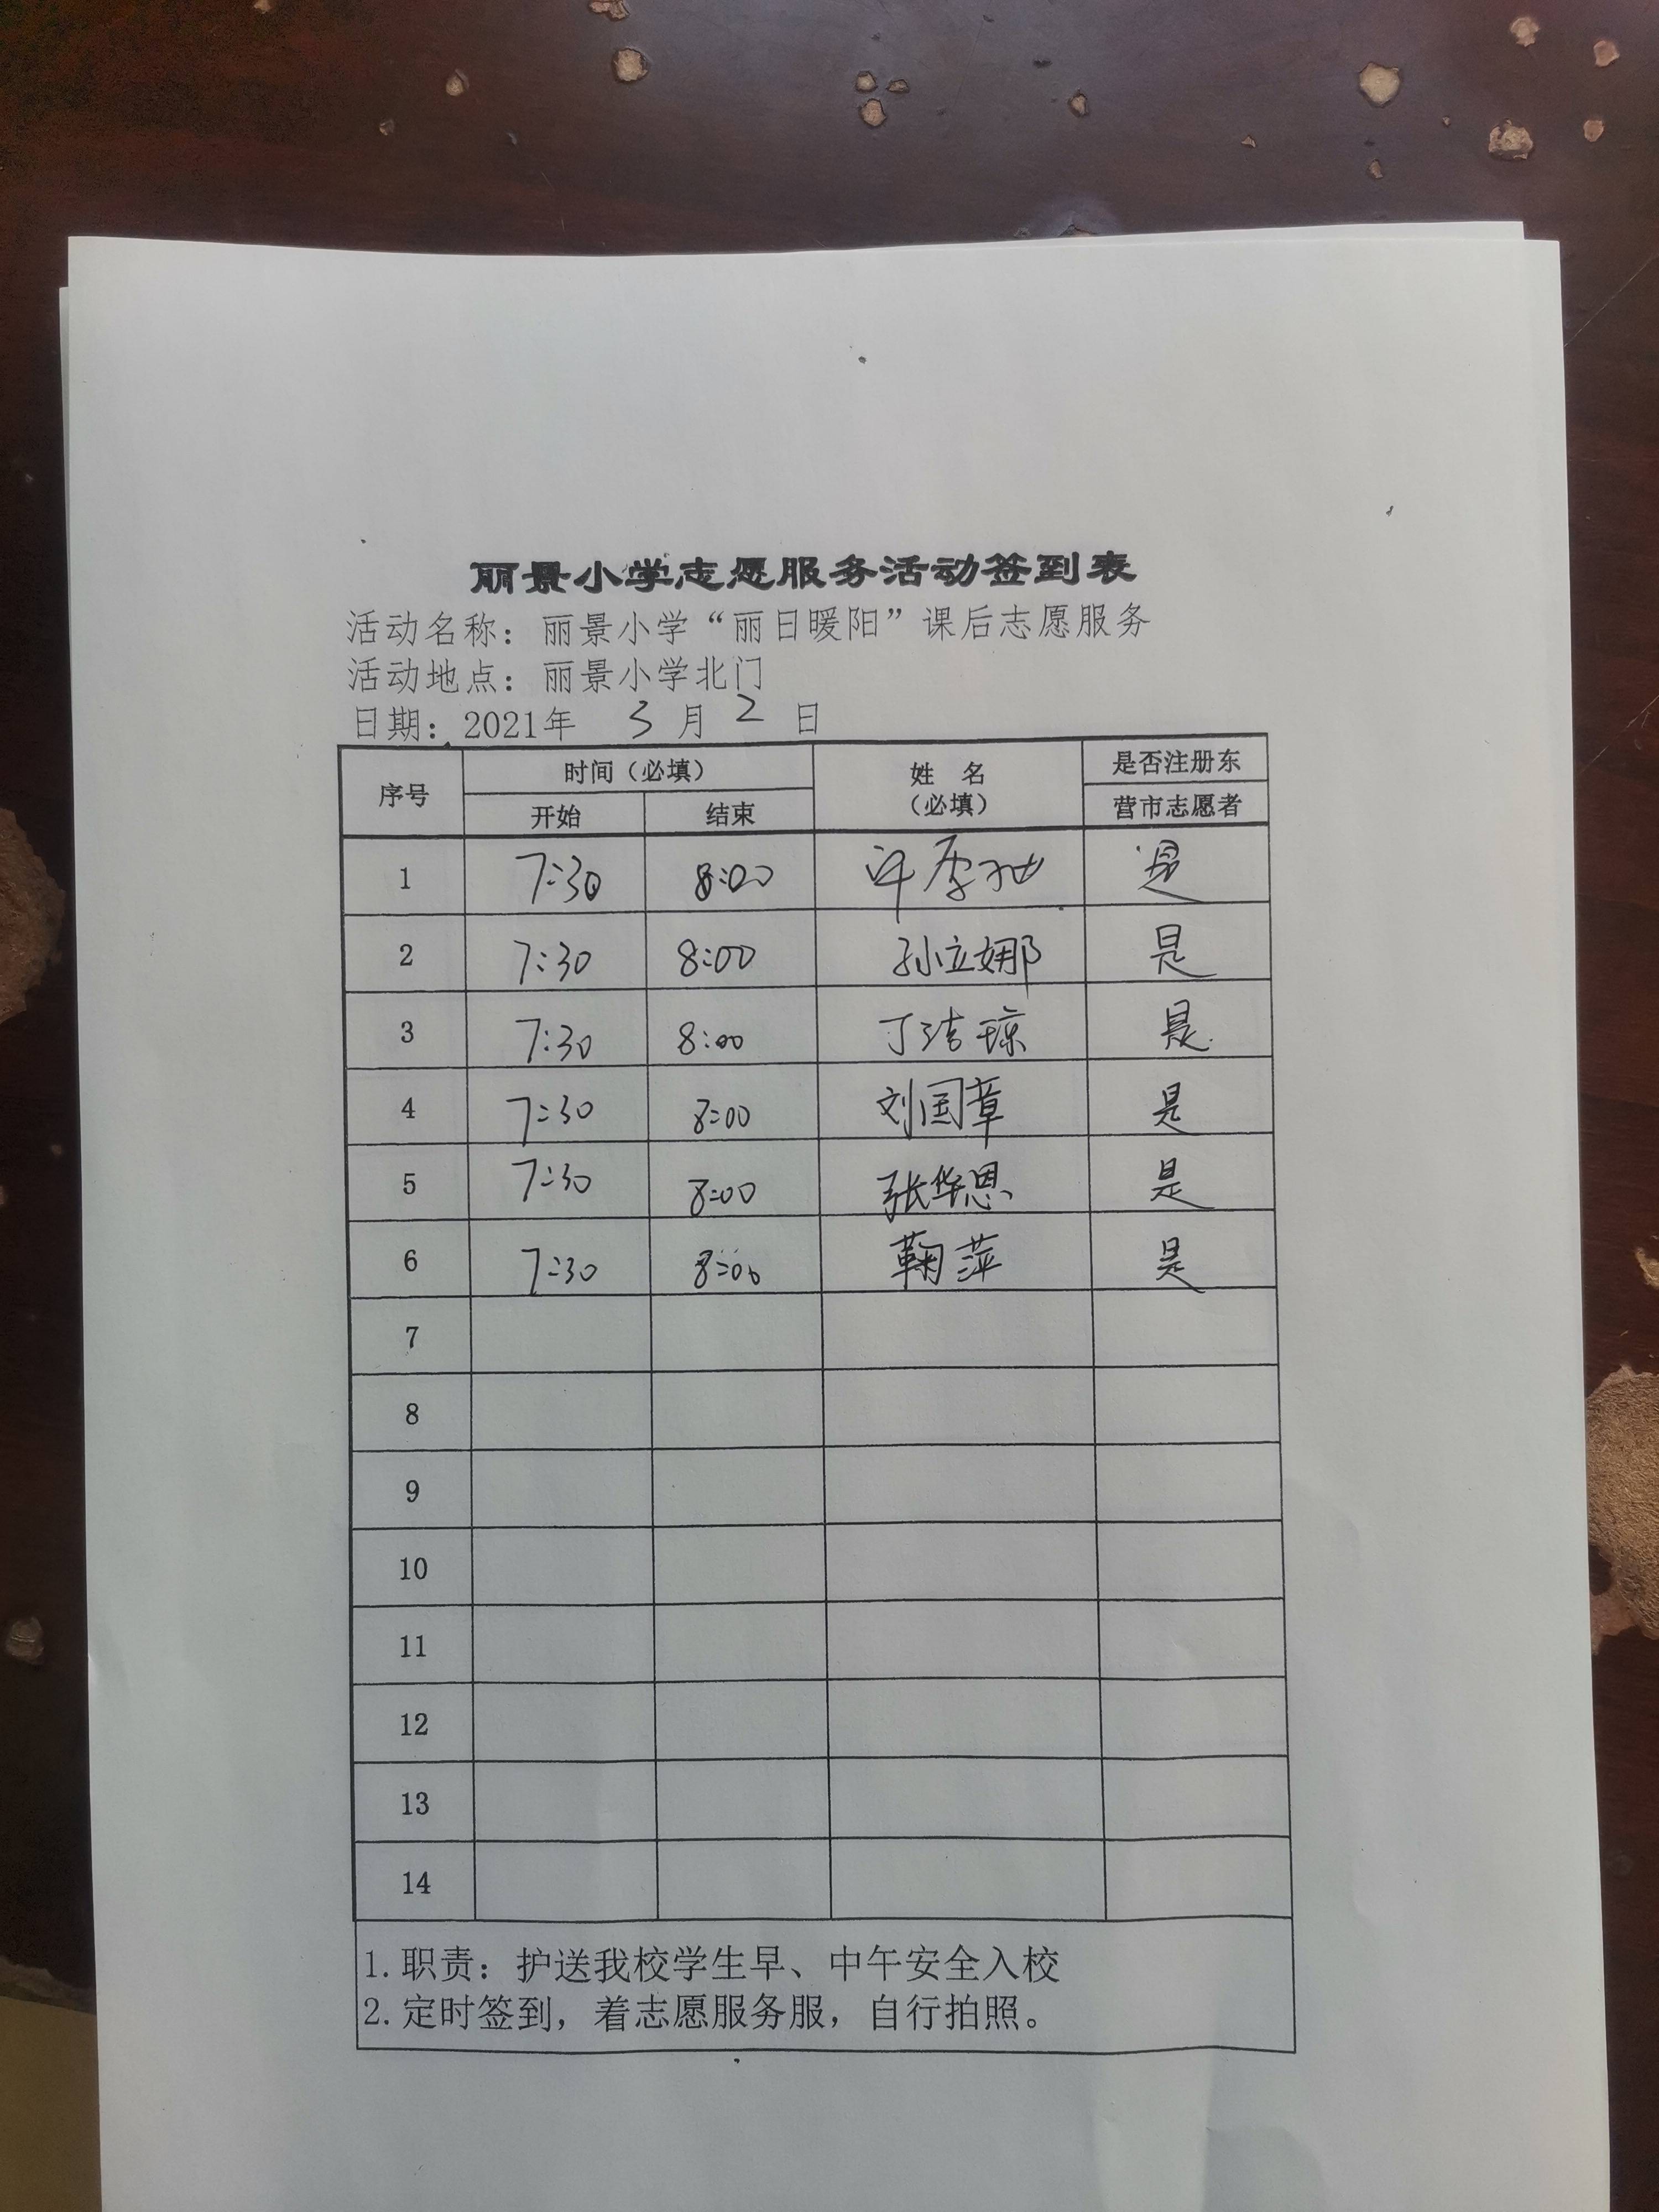 丽景小学志愿服务活动签到表
活动名称：丽景小学“丽日暖阳”课后志愿服务
活动地点：丽景小学北门
日期：2021年 3 月 2 日
序号 时间（必填） 姓 名（必填） 是否注册东营市志愿者
开始 结束
1 7:30 8:00 是
2 7:30 8:00 孙立娜 是
3 7:30 8:00 丁洁琼 是
4 7:30 8:00 刘国章 是
5 7:30 8:00 张华恩 是
6 7:30 8:00 鞠萍 是
7
8
9
10
11
12
13
14
1.职责：护送我校学生早、中午安全入校
2.定时签到，着志愿服务服，自行拍照。